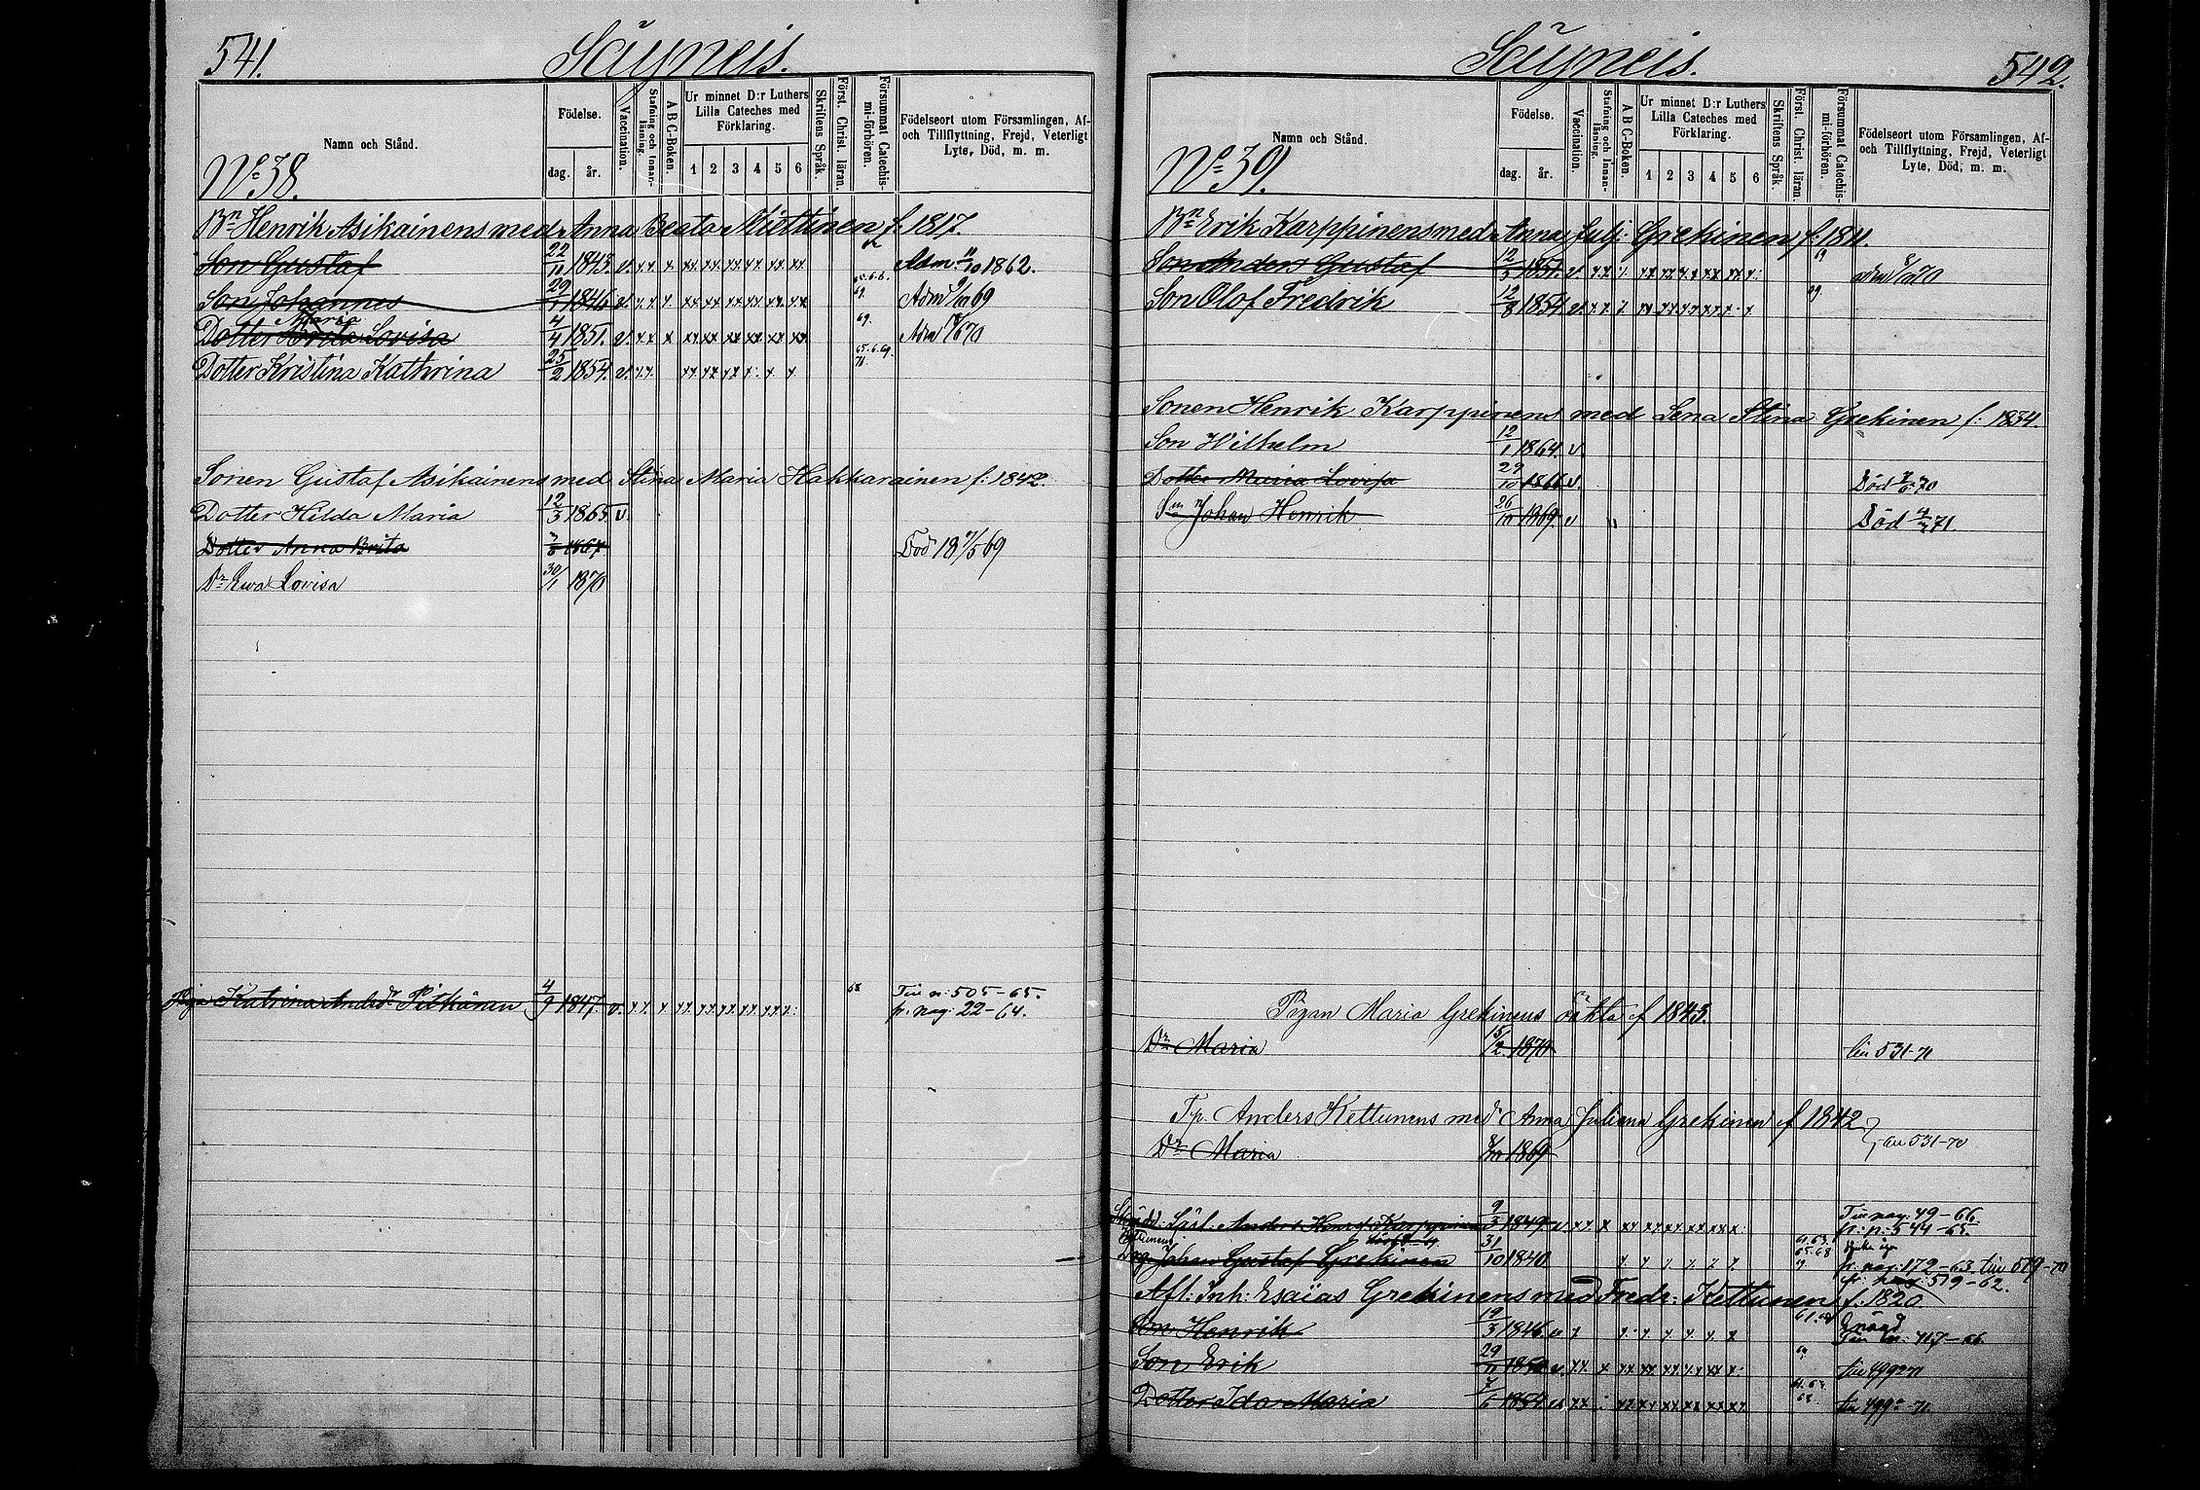 541.
Säyneis.
Namn och Stånd.
Födelse.
dag.
år.
Vaccination.
Stafning och Innan-läsning.
A B C-Boken.
Ur minnet D:r Luthers
Lilla Cateches med
Förklaring.
1 2 3 4 5 6
Skriftens Språk.
Först. Christ. läran.
Försummat Catechis-mi-förhören.
Födelseort utom Församlingen, Af-
och Tillflyttning, Frejd, Veterligt
Lyte, Död, m. m.
No 38.
Bn Henrik Asikainens med Anna Beata Miettinen f. 1817.
Son Gustaf 22/10 1843. v. Adm. 1862.
Son Johannes 29/1 1846 v. 69. Adm 69
Maria
Dotter Brita Lovisa 4/4 1851. v. 69. Adm 70
Dotter Kristina Kathrina 25/2 1854. v. 65.6.69. 71.
Sonen Gustaf Asikainens med Stina Maria Hakkarainen f. 1842.
Dotter Hilda Maria 12/3 1865 v.
Dotter Anna Brita 1867 Död 18 7/5 69
Dr Ewa Lovisa 30/1 1870
Katrina Andsdr Pitkänen 4/9 1847. v. 68 Till n: 505-65.
fr. pag: 22-64.
Säyneis.
542.
Namn och Stånd.
Födelse.
dag.
år.
Vaccination.
Stafning och Innan-läsning.
A B C-Boken.
Ur minnet D:r Luthers
Lilla Cateches med
Förklaring.
1 2 3 4 5 6
Skriftens Språk.
Först. Christ. läran.
Försummat Catechis-mi-förhören.
Födelseort utom Församlingen, Af-
och Tillflyttning, Frejd, Veterligt
Lyte, Död, m. m.
No 39.
Bn Erik Karppinens med Anna Julj: Grekinen f. 1811.
Son Anders Gustaf 12/5 1851. v. 69 adm 70
Son Olof Fredrik 12/8 1854. v. 69.
Sonen Henrik Karppinens med Lena Stina Grekinen f: 1834.
Son Wilhelm 12/1 1864. v.
Dotter Maria Lovisa 29/10 1866 v. Död 70
Sn Johan Henrik 26/10 1869 v Död 71
Pigan Maria Grekinens oäkta f 1843.
Dr Maria 15/2 1870 till 531-71
Tp. Anders Kettunens med Anna Juliana Grekinen f 1842
Dr Maria 1869 531-70
Anders Henrik Karppinen 9/3 1849 v Till pag: 49-66
fr: p: 544-65.
Johan Gustaf Grekinen 31/10 1840 fr. pag: 172-63 till 519-70
fr: 519-62.
Afl: Inh: Esaias Grekinens med Fredr: Kettunen f. 1820
Son Henrik 12/3 1846 v Till n: 417-66
Son Erik 29/11 1850 v. till 499-71
Dotter Ida Maria 7/6 1854 till 499-71.